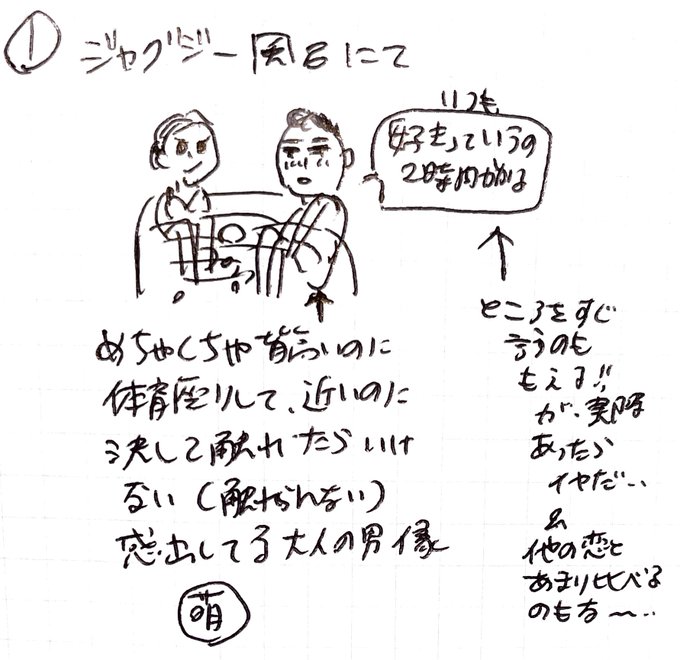 ① ジャグジー風呂にて
いつも
好きっていうの
2時間かかる
めちゃくちゃ背高いのに
体育座りして、近いのに
決して触れたらいけ
ない(触れらんない)
感出してる大人の男 縁
萌
ところをすぐ
言うのも
もえる!!
が、実際
あったら
イヤだ…
&
他の恋と
あまり比べる
のもな〜…